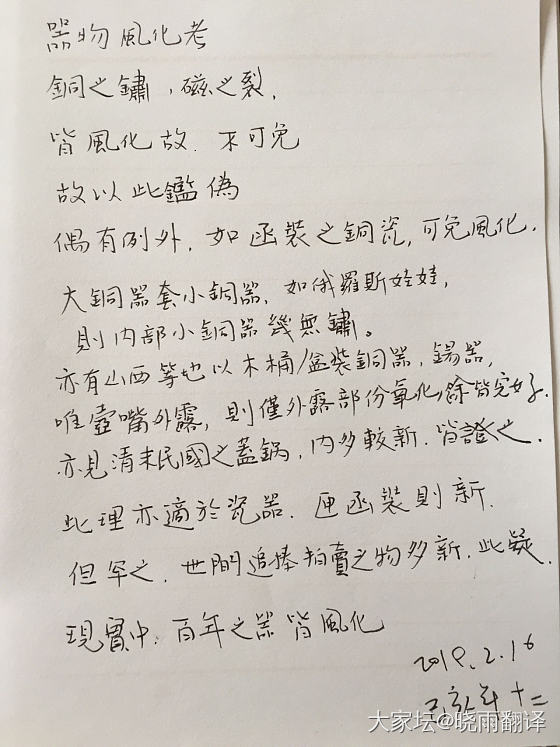 器物風化考
銅之鏽，磁之裂，
皆風化故．不可免
故以此鑑偽
偶有例外，如函裝之銅瓷，可免風化．
大銅器套小銅器，如俄羅斯娃娃，
則内部小銅器幾無鏽。
亦有山西等地以木桶/盆裝銅器，錫器，
唯壺嘴外露，則僅外露部份氧化，餘皆完好．
亦見清末民國之蓋鍋，内多較新．皆證之．
此理亦適於瓷器．匣函裝則新．
但罕之．世間追捧拍賣之物多新．此疑．
現實中，百年之器皆風化
2019.2.16
己亥年十二
大家坛@晓雨翻译